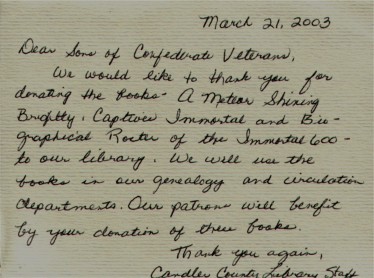 March 21, 2003
Dear Sons of Confederate Veterans,
We would like to thank you for
donating the books - A Meteor Shining
Brightly, Captives Immortal and Bio-
graphical Roster of the Immortal 600 -
to our library. We will use the
books in our genealogy and circulation
departments. Our patrons will benefit
by your donation of these books.
Thank you again,
Candler County Library Staff